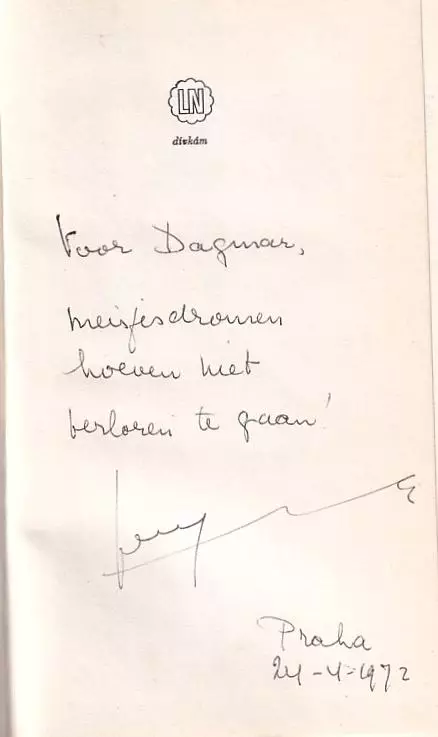 LN
dívkám
Voor Dagmar,
meisjesdromen
hoeven niet
verloren te gaan!
Praha
24-4-1972